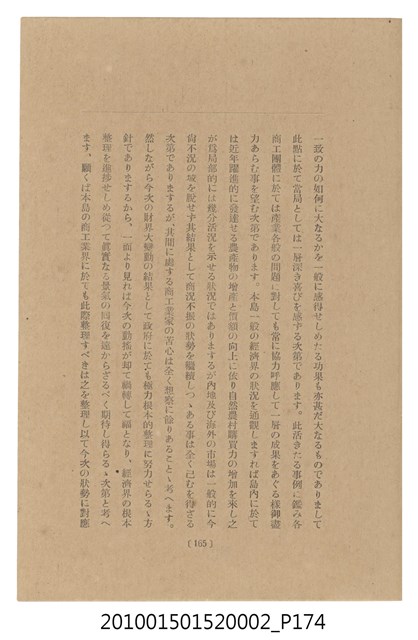 一致の力の如何に大なるかを一般に感得せしめたる功果も亦甚だ大なるものでありまして
此點に於て當局としては一層深き喜びを感ずる次第であります。此活きたる事例に鑑み各
商工團體に於ては產業各般の問題に對しても常に協力呼應して一層の成果をあぐる樣御盡
力あらむ事を望む次第であります。本島一般の經濟界の狀況を通觀しますれば島內に於て
は近年躍進的に發達せる農產物の增產と價額の向上に依り自然農村購買力の增加を來し之
が爲局部的には幾分活況を示せる狀況ではありまするが內地及び海外の市場は一般的に今
尙不況の域を脫せず其結果として商況不振の狀勢を繼續しつゝある事は全く已むを得ざる
次第でありまするが、其間に處する商工業家の苦心は全く想察に餘りあることゝ考へます。
然しながら今次の財界大變動の結果として政府に於ても極力根本的整理に努力せらるゝ方
針でありまするから、一面より見れば今次の動搖が却て禍轉じて福となり、經濟界の根本
整理を進捗せしめ從つて眞實なる景氣の回復を遠からざるべく期待し得らるゝ次第と考へ
ます、願くば本島の商工業界に於ても此際整理すべきは之を整理し以て今次の狀勢に對應
( 165 )
201001501520002_P174